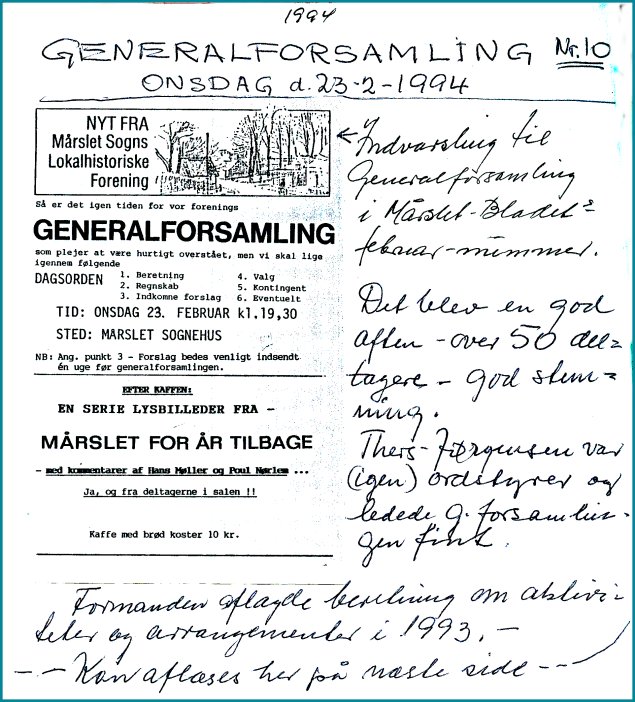 1994
GENERALFORSAMLING Nr. 10
ONSDAG d. 23-2-1994
NYT FRA
Mårslet Sogns
Lokalhistoriske
Forening
Så er det igen tiden for vor forenings
GENERALFORSAMLING
som plejer at være hurtigt overstået, men vi skal lige
igennem følgende
DAGSORDEN
1. Beretning
2. Regnskab
3. Indkomne forslag
4. Valg
5. Kontingent
6. Eventuelt
TID: ONSDAG 23. FEBRUAR kl.19,30
STED: MÅRSLET SOGNEHUS
NB: Ang. punkt 3 - Forslag bedes venligt indsendt
én uge før generalforsamlingen.
EFTER KAFFEN:
EN SERIE LYSBILLEDER FRA -
MÅRSLET FOR ÅR TILBAGE
- med kommentarer af Hans Møller og Poul Nørlem ...
Ja, og fra deltagerne i salen !!
Kaffe med brød koster 10 kr.
Indvarsling til
Generalforsamling
i Mårslet-Bladets
februar-nummer.
Det blev en god
aften - over 50 del=
tagere - god stem=
ning.
Thers-Jørgensen var
(igen) ordstyrer og
ledede G. forsamlin-
gen fint.
Formanden aflagde beretning om aktivi-
teter og arrangementer i 1993. -
- - Kan aflæses her på næste side - -